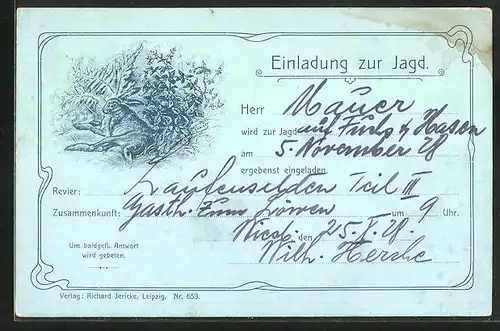 Einladung zur Jagd.
Herr Mauer
wird zur Jagd auf Fuchs & Hasen
am 5. November 28
ergebenst eingeladen.
Revier: Laufenselden Teil III
Zusammenkunft: Gasth. zum Löwen um 9 Uhr.
den 25.
Um baldgefl. Antwort
wird gebeten.
Wilh.
Verlag: Richard Jericke, Leipzig. Nr. 653.